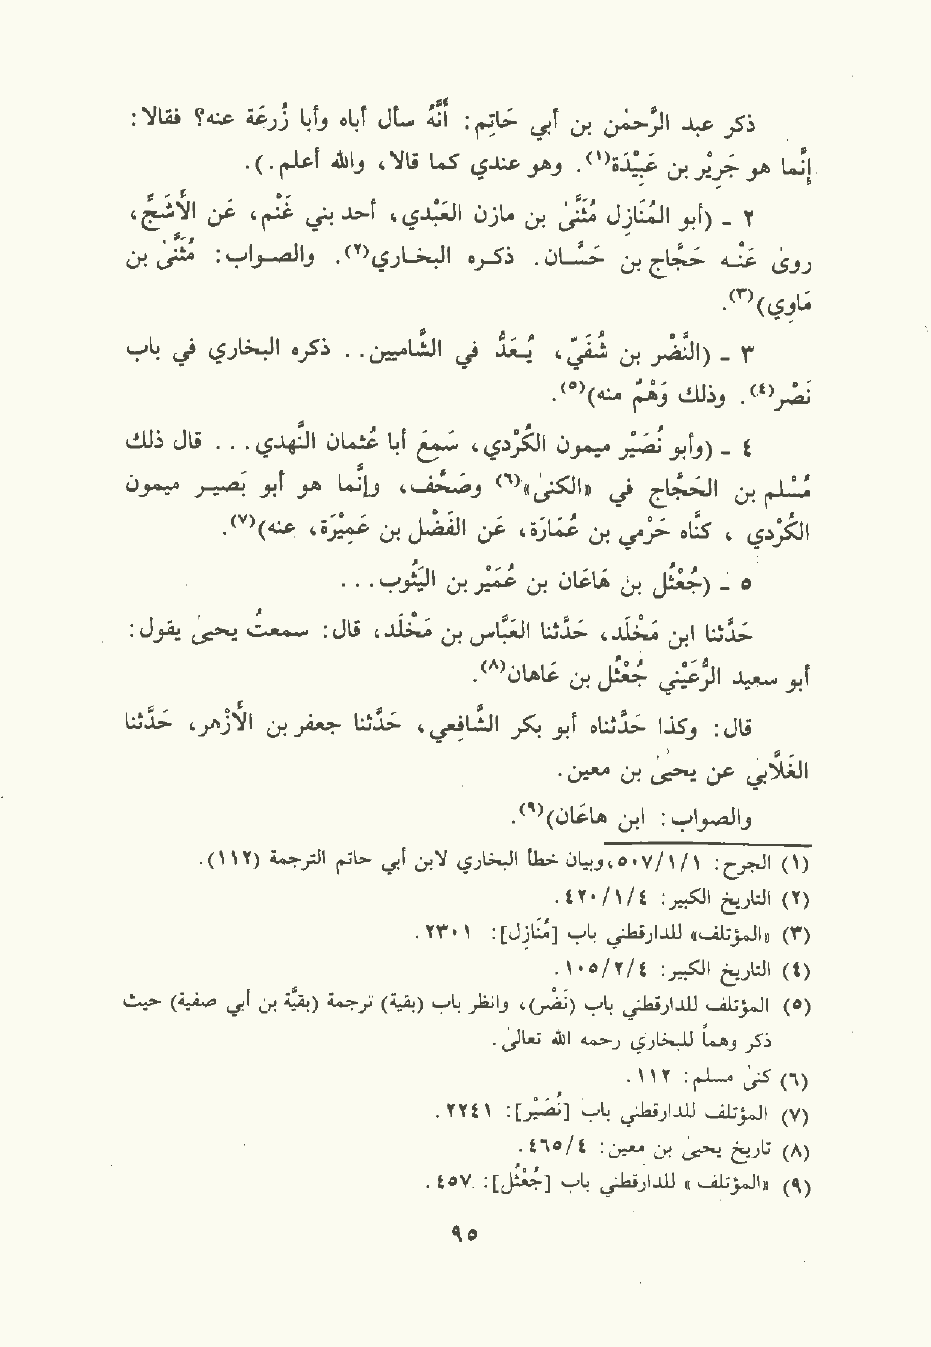 ذكر عبد الرَّحمٰن بن أبي حَاتِم: أنَّهُ سأل أباه وأبا زُرعَة عنه؟ فقالا:
إنَّما هو جَرِيْر بن عَبِيْدَة(١). وهو عندي كما قالا، والله أعلم.).
٢ ـ (أبو المُنَازِل مُثَنَّىٰ بن مازن العَبْدي، أحد بني غَنْم، عن الأشَجِّ،
روىٰ عَنْـه حَجَّاج بن حَسَّـان. ذكـره البخـاري(٢). والصـواب: مُثَنَّىٰ بن
مَاوِي)(٣).
٣ ـ (النَّضْر بن شُفَيّ، يُـعَدُّ في الشَّاميين.. ذكره البخاري في باب
نَصْر(٤). وذلك وَهْمٌ منه)(٥).
٤ ـ (وأبو نُصَيْر ميمون الكُرْدي، سَـمِعَ أبا عُثمان النَّهدي... قال ذلك
مُسْلم بن الحَجَّاج في «الكنىٰ»(٦) وصَحَّف، وإنَّما هو أبو بَصـيـر ميمون
الكُرْدي ، كنَّاه حَرَمي بن عُمَارَة، عَن الفَضْل بن عَمِيْرَة، عنه)(٧).
٥ ـ (جُعْثُل بن هَاعَان بن عُمَيْر بن اليَثُوب...
حَدَّثنا ابن مَخْلَد، حَدَّثنا العَبَّاس بن مَخْلَد، قال: سمعتُ يحيىٰ يقول:
أبو سعيد الرُّعَيْني جُعْثُل بن عَاهان(٨).
قال: وكذا حَدَّثناه أبو بكر الشَّافِعي، حَدَّثنا جعفر بن الأزْهر، حَدَّثنا
الغَلاَّبي عن يحيىٰ بن معين.
والصواب: ابن هاعَان)(٩).
(١) الجرح: ٥٠٧/١/١، وبيان خطأ البخاري لابن أبي حاتم الترجمة (١١٢).
(٢) التاريخ الكبير: ٤٢٠/١/٤.
(٣) «المؤتلف» للدارقطني باب [مُنَازِل]: ٢٣٠١.
(٤) التاريخ الكبير: ١٠٥/٢/٤.
(٥) المؤتلف للدارقطني باب (نَضْر)، وانظر باب (بقية) ترجمة (بقيَّة بن أبي صفية) حيث
ذكر وهماً للبخاري رحمه الله تعالىٰ.
(٦) كنىٰ مسلم: ١١٢.
(٧) المؤتلف للدارقطني باب [نُصَيْر]: ٢٢٤١.
(٨) تاريخ يحيىٰ بن معين: ٤٦٥/٤.
(٩) «المؤتلف» للدارقطني باب [جُعْثُل]: ٤٥٧.
٩٥